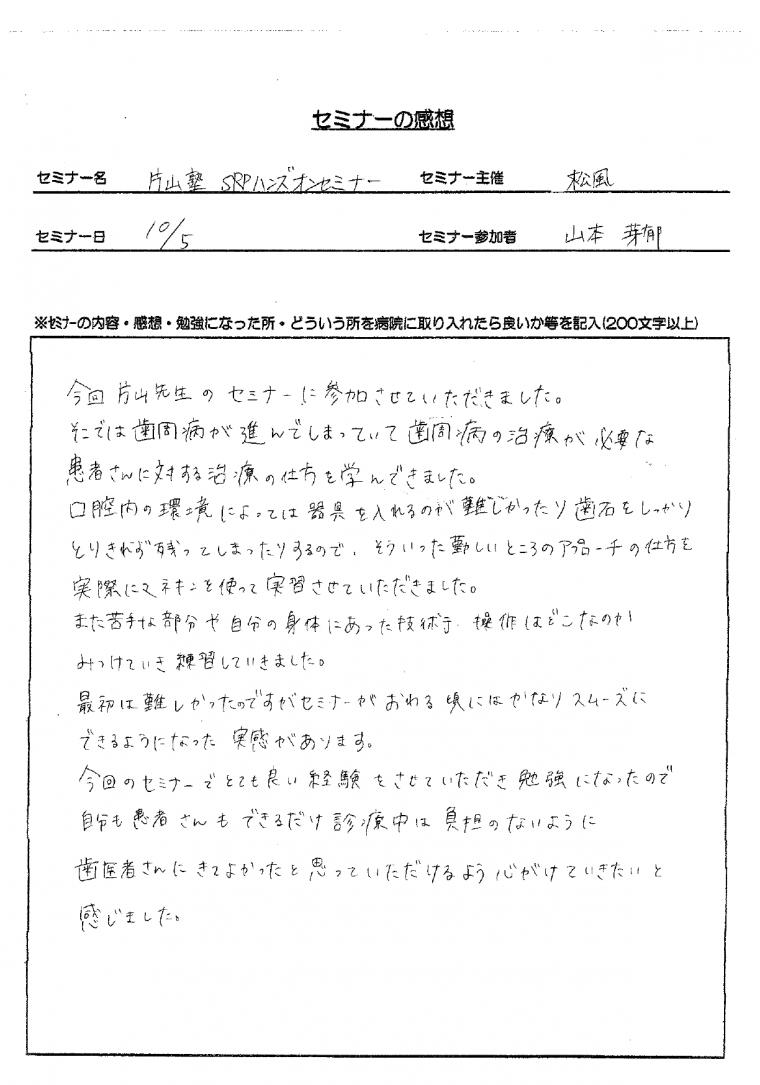 セミナーの感想
セミナー名 片山塾 SRPハンズオンセミナー セミナー主催 松風
セミナー日 10/5 セミナー参加者 山本 芽郁
※セミナーの内容・感想・勉強になった所・どういう所を病院に取り入れたら良いか等を記入(200文字以上)
今回片山先生のセミナーに参加させていただきました。
そこでは歯周病が進んでしまっていて歯周病の治療が必要な
患者さんに対する治療の仕方を学んできました。
口腔内の環境によっては器具を入れるのが難しかったり歯石をしっかり
とりきれず残ってしまったりするので、そういった難しいところのアプローチの仕方を
実際にマネキンを使って実習させていただきました。
また苦手な部分や自分の身体にあった技術を 操作はどこなのか
みつけていき練習していきました。
最初は難しかったのですがセミナーがおわる頃にはかなりスムーズに
できるようになった実感があります。
今回のセミナーでとても良い経験をさせていただき勉強になったので
自分も患者さんもできるだけ診療中は負担のないように
歯医者さんにきてよかったと思っていただけるよう心がけていきたいと
感じました。